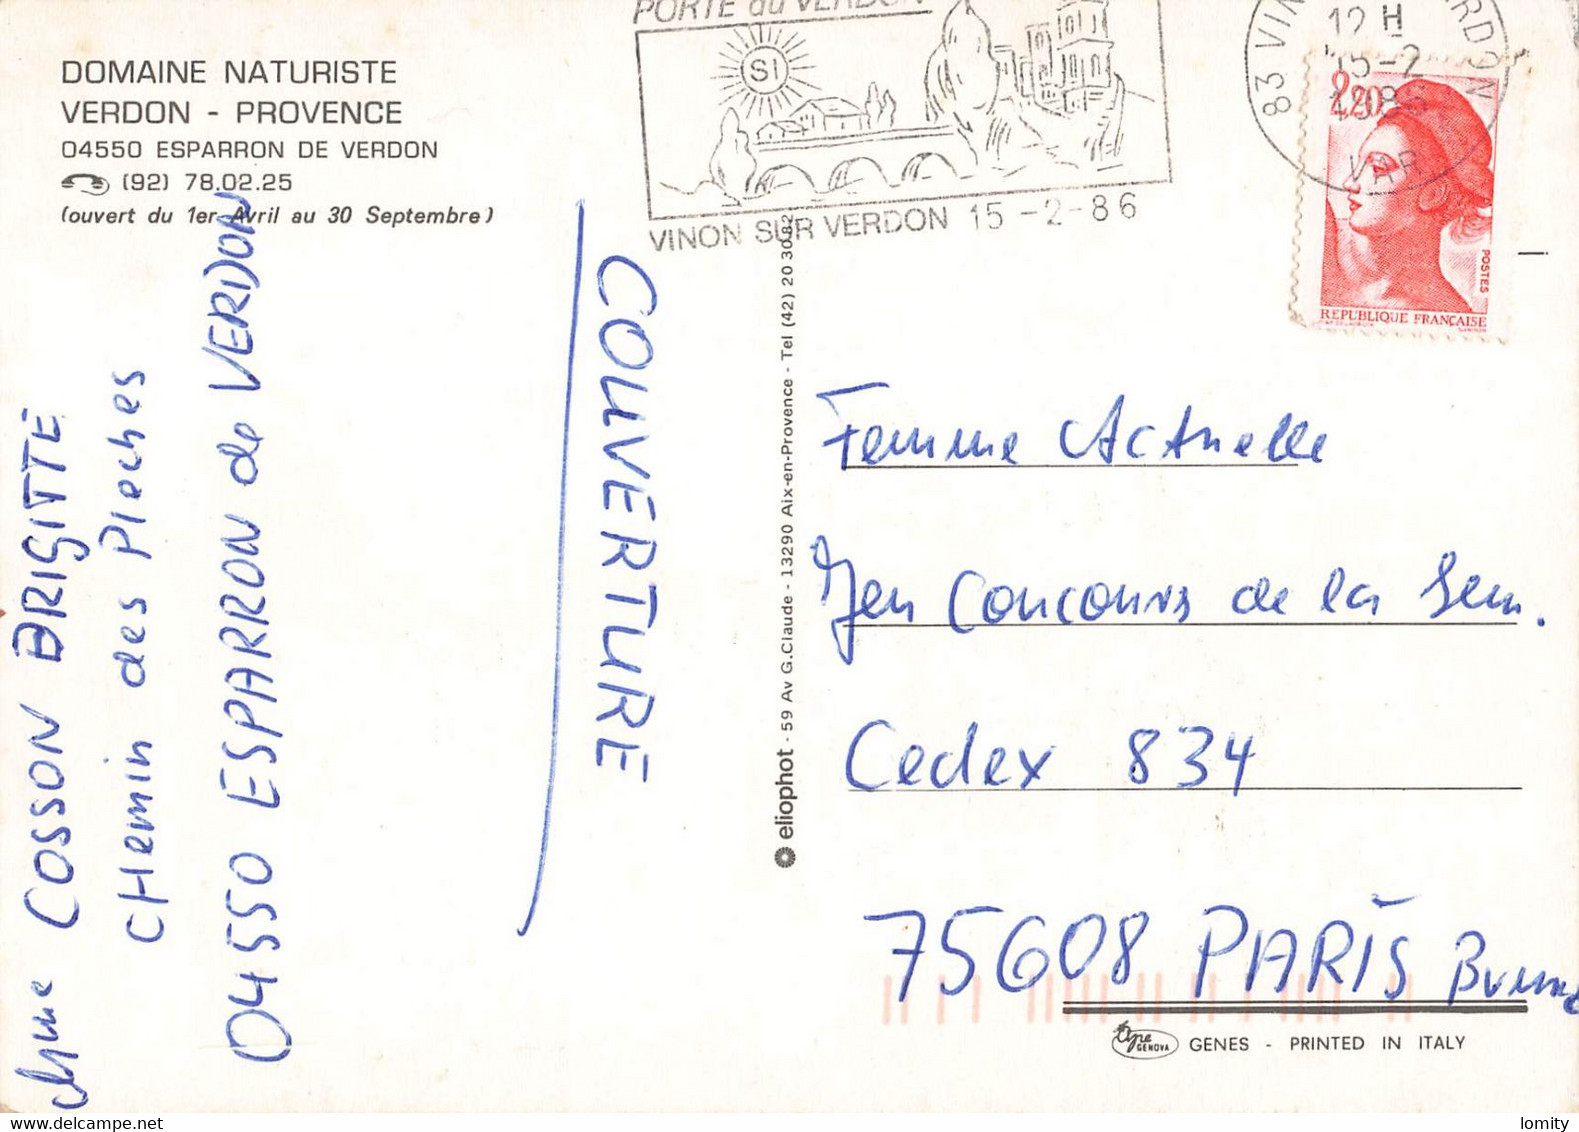 DOMAINE NATURISTE
VERDON - PROVENCE
04550 ESPARRON DE VERDON
(92) 78.02.25
(ouvert du 1er Avril au 30 Septembre)
Mme COSSON BRIGITTE
CHemin des Pleches
04550 ESPARRON de VERDON
COUVERTURE
PORTE du VERDON
SI
VINON SUR VERDON 15-2-86
83 VIN RDON
12 H
15-2
1986
VAR
2,20
POSTES
REPUBLIQUE FRANÇAISE
eliophot - 59 Av G.Claude - 13290 Aix-en-Provence - Tel (42) 20 30 82
Femme Actuelle
Jeu Concours de la Sem.
Cedex 834
75608 PARIS Brune
Type GENOVA GENES - PRINTED IN ITALY
lomity